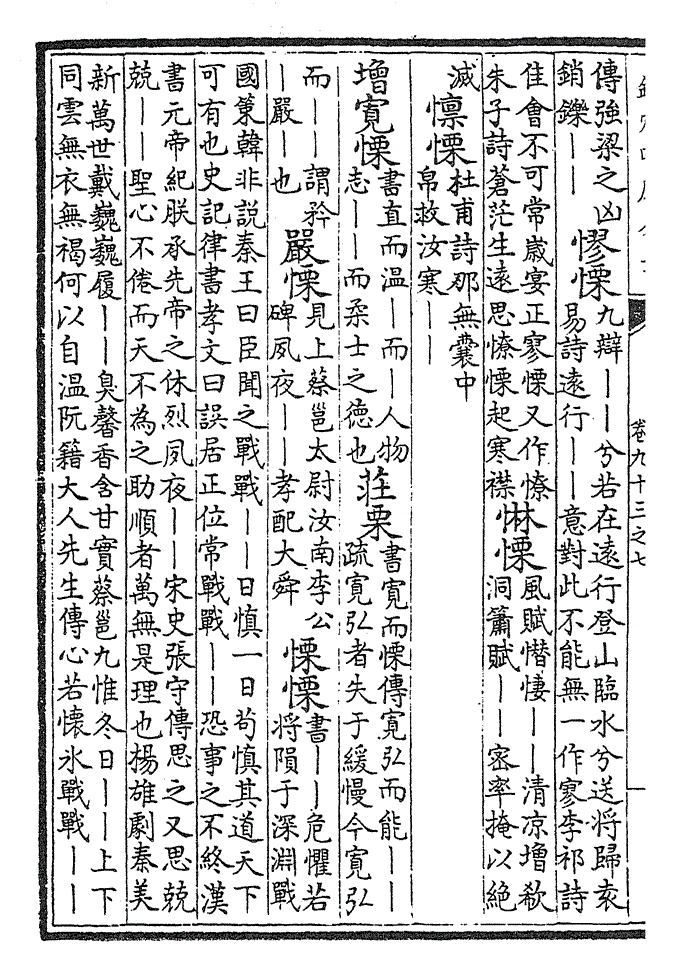 卷九十三之七
傳強梁之凶
銷鑠——
憀慄
九辯——兮若在遠行登山臨水兮送將歸袁
易詩遠行——意對此不能無一作寥李祁詩
佳會不可常歲宴正寥慄又作憭
朱子詩蒼茫生遠思憭慄起寒襟
惏慄
風賦憯悽——清凉增欷
洞簫賦——密率掩以絕
滅
懔慄
杜甫詩那無囊中
帛救汝寒——
增
寛慄
書直而温—而—人物
志——而柔士之德也
莊栗
書寛而慄傳寛弘而能——
疏寛弘者失于緩慢今寛弘
而——謂矜
——嚴—也
嚴慄
見上蔡邕太尉汝南李公
碑夙夜——孝配大舜
慄慄
書——危懼若
將隕于深淵戰
國策韓非說秦王曰臣聞之戰戰——日慎一日苟慎其道天下
可有也史記律書孝文曰誤居正位常戰戰——恐事之不終漢
書元帝紀朕承先帝之休烈夙夜——宋史張守傳思之又思兢
兢——聖心不倦而天不為之助順者萬無是理也楊雄劇秦美
新萬世戴巍巍履——臭馨香含甘實蔡邕九惟冬日——上下
同雲無衣無褐何以自温阮籍大人先生傳心若懷氷戰戰——